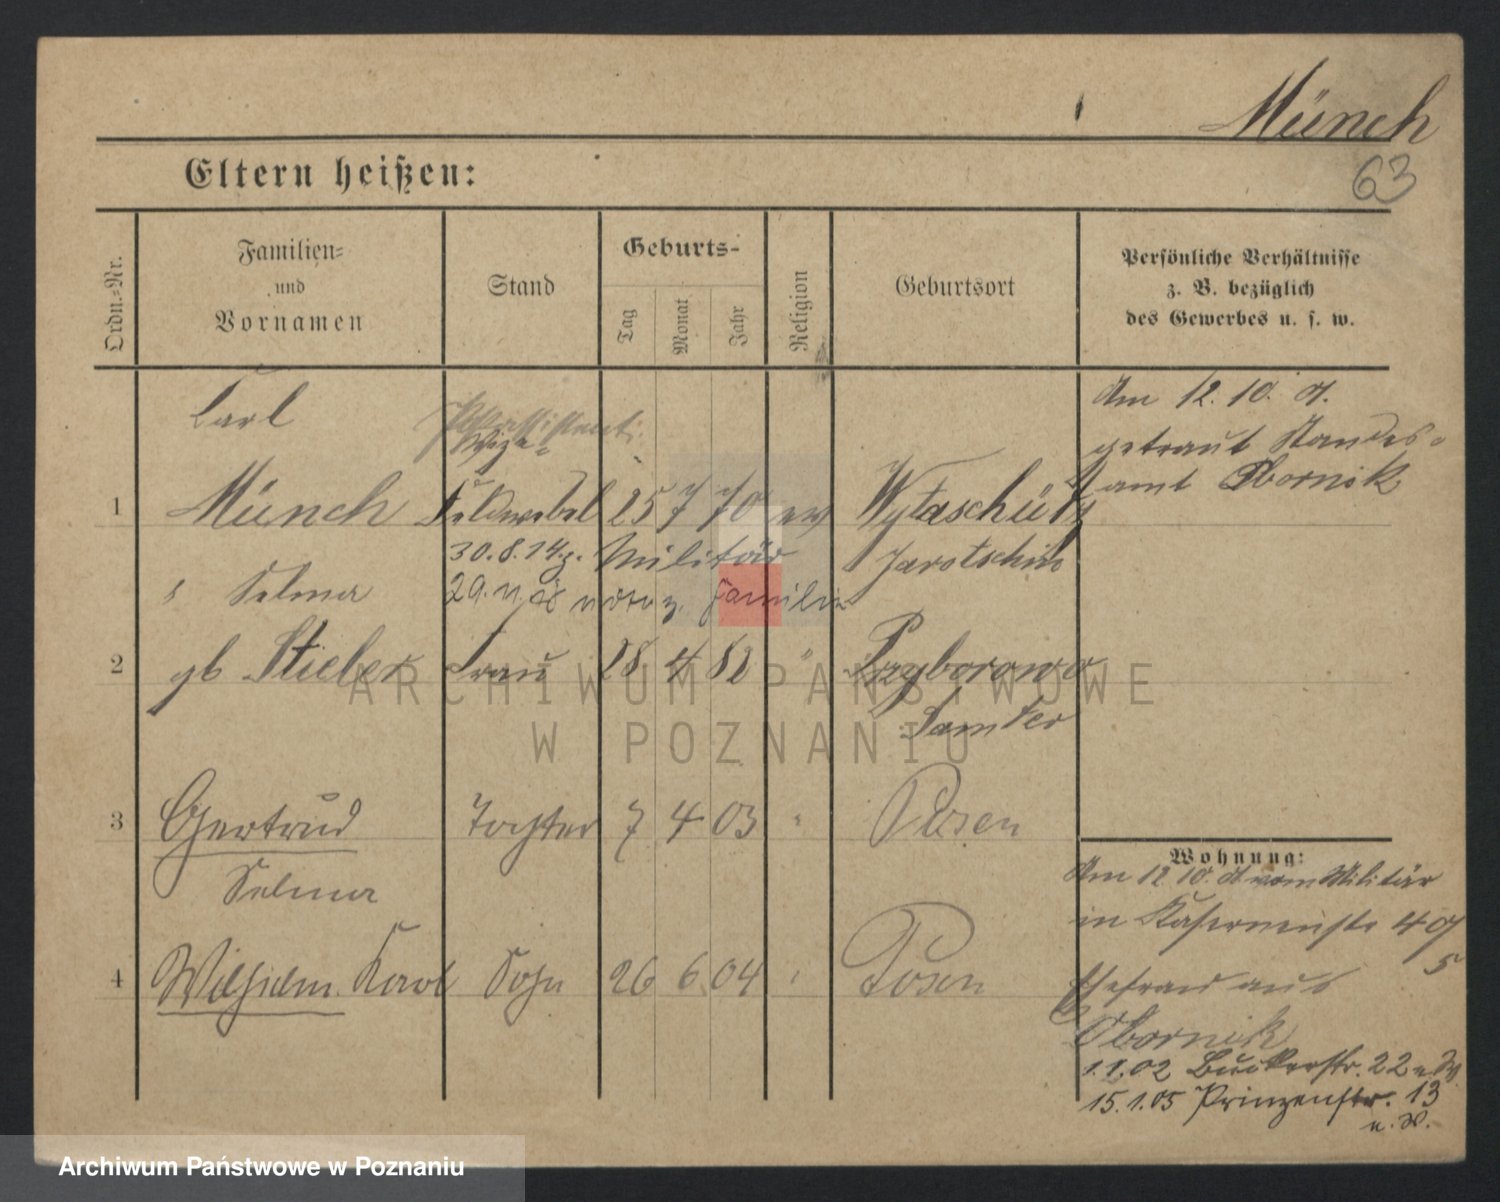 Münch
63
Eltern heißen:
Ordn.=Nr.
Familien=
und
Vornamen
Stand
Geburts-
Tag
Monat
Jahr
Religion
Geburtsort
Persönliche Verhältnisse
z. B. bezüglich
des Gewerbes u. s. w.
Carl
Vize=
1 Münch Feldwebel 25 7 70 ev Wytaschütz
30.8.14 z. Militär Jarotschin
Selma
29.11.18 z. Familie
2 gb Stieler Frau 28 4 82 " Przyborowo
Samter
3 Gertrud Tochter 7 4 03 " Posen
Selma
4 Wilhelm Karl Sohn 26 6 04 " Posen
Am 12. 10. 01.
getraut Standes=
amt Obornik
Wohnung:
Am 12 10. 01 vom Militär
in Kasernenstr 4
5
Ehefrau aus
Obornik
1.1.02 Bukerstr. 22
15.1.05 Prinzenstr. 13
u. W.
ARCHIWUM PAŃSTWOWE
W POZNANIU
Archiwum Państwowe w Poznaniu